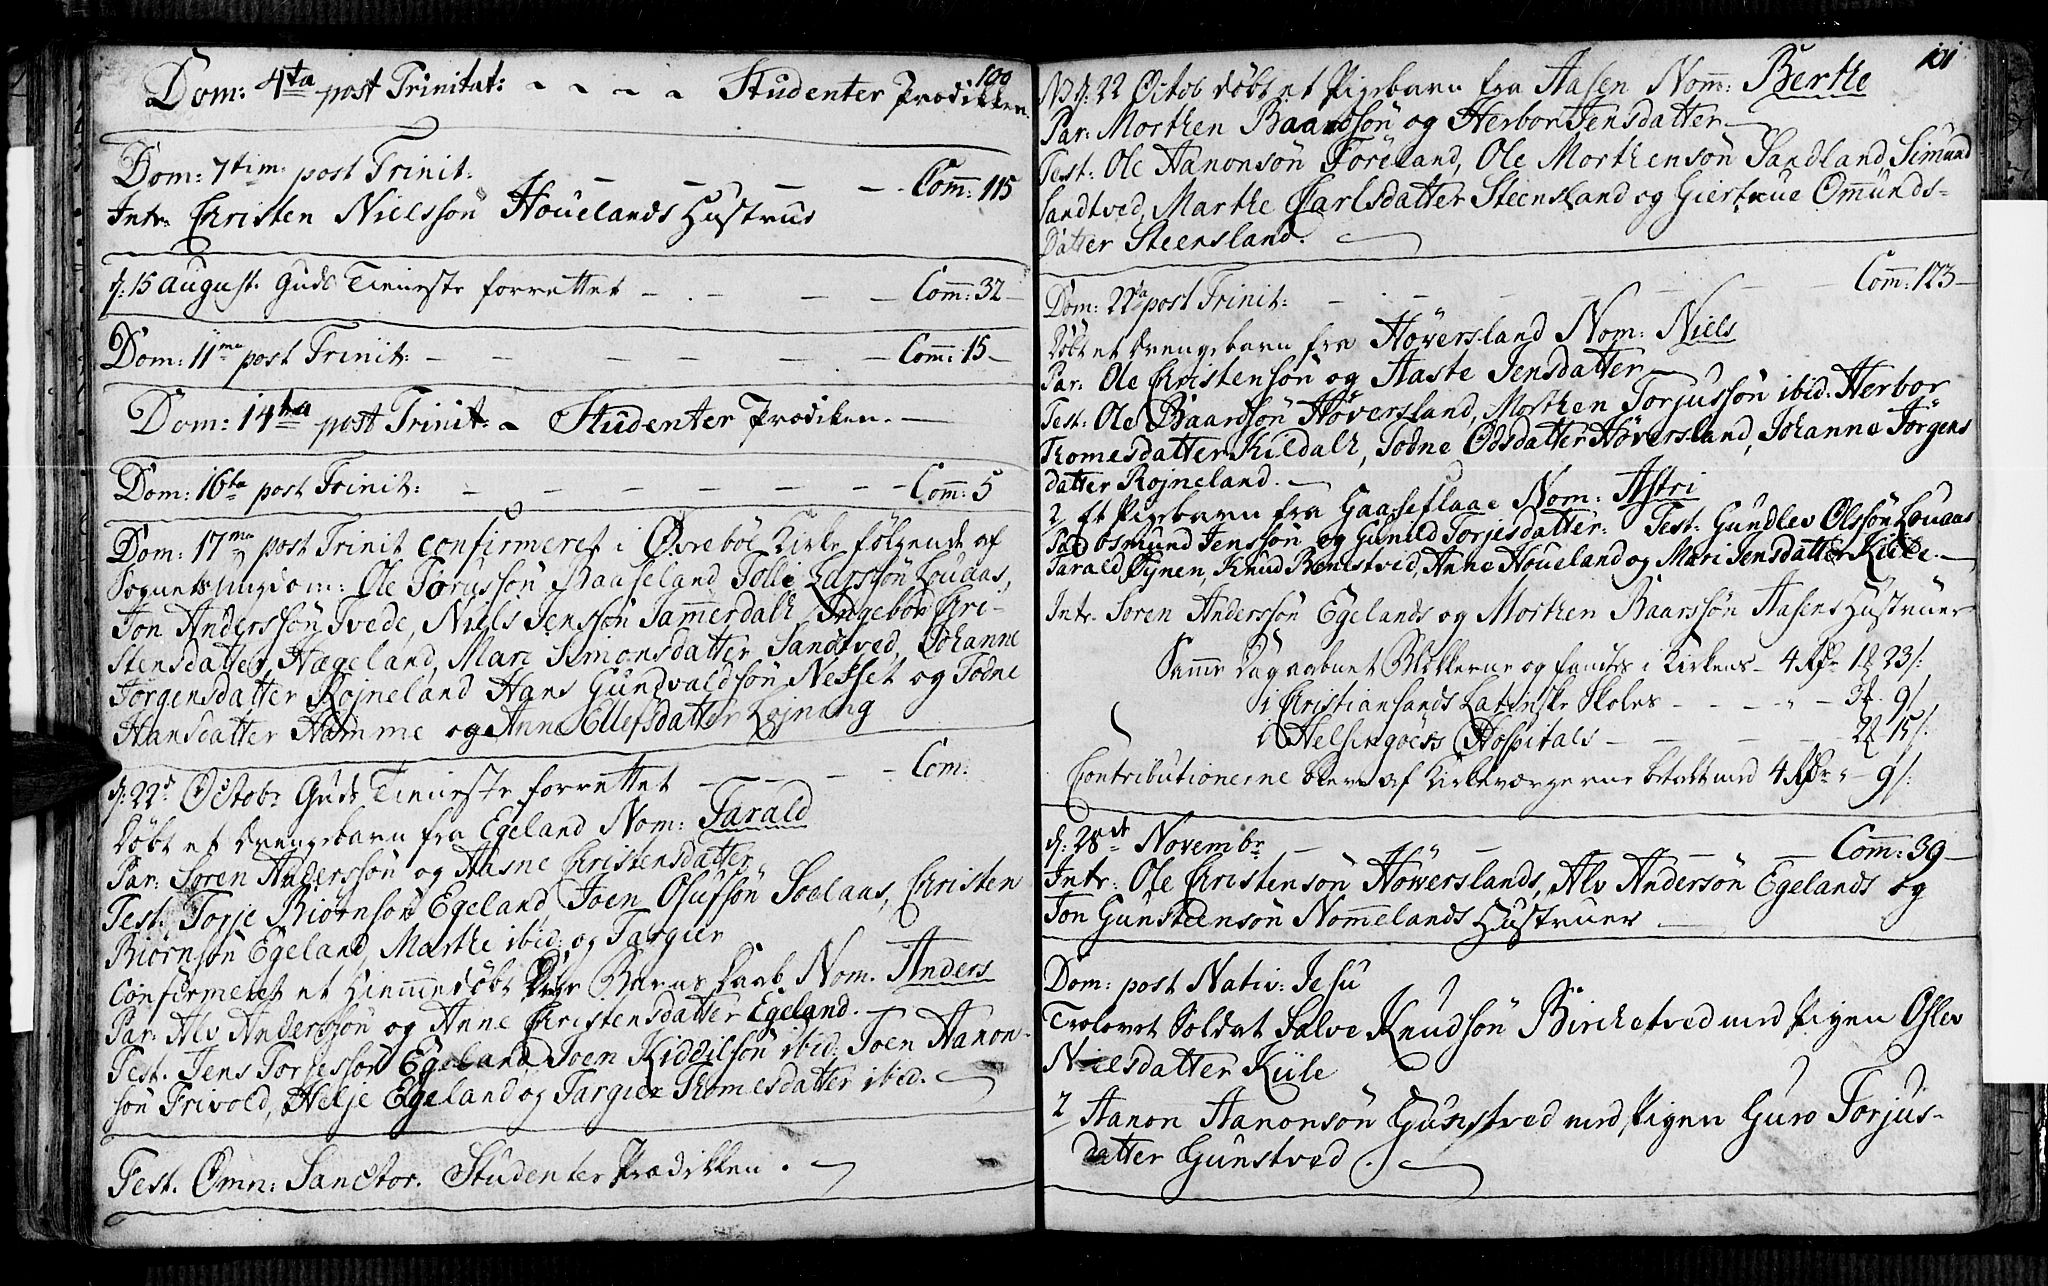 100
Dom: 4ta post Trinitat: - - - - Studenter Prædikken.
Dom: 7tim. post Trinit: - - - - Com̄: 115
Intr: Christen Nielssøn Houelands Hustrue
d: 15 August. Guds Tieneste forrettet - - - - Com̄: 32
Dom: 11me post Trinit: - - - - - - Com̄: 15 -
Dom: 14ta post Trinit: - Studenter Prædiken. -
Dom: 16ta post Trinit: - - - - - - Com̄: 5
Dom: 17me post Trinit confirmeret i Øvrebøe Kirke følgende af
Sognets Ungdom: Ole Torjussøn Baaseland, Tolli Larssøn Louaas,
Jon Anderssøn Tvede, Niels Jenssøn Jam̄erdalh, Ingebor Chri-
stensdatter Hægeland, Mari Simonsdatter Sandtved, Johanne
Jørgensdatter Røjneland Hans Gundvaldsøn Nesset og Todne
Hansdatter Hamme og Anne Ellefsdatter Løjning
d: 22d Octobr Guds Tieneste forrettet - - - - Com:
Døbt et Drengebarn fra Egeland Nom: Tarald
Par: Søren Anderssøn og Aasne Christensdatter
Test: Torje Biørnsøn Egeland, Joen Olufsøn Soelaas, Christen
Biørnsøn Egeland, Marthe ibid: og Targier
Confirmeret et Hiem̄edøbt Barns Daab, Nom. Anders
Par: Alv Anderssøn og Anne Christensdatter Egeland. -
Test. Jens Torjessøn Egeland, Joen Kiddilsøn ibid: Joen Aanon-
søn Frivold, Helje Egeland og Targier Thomesdatter ibid.
Fest. Omn: Sanctor. Studenter Prædikken.
101
NB d: 22 Octob døbt et Pigebarn fra Aasen Nom̄: Berthe
Par: Morthen Baardsøn og Herbor Jensdatter
Test: Ole Aanonsøn Føreland, Ole Morthensøn Sandland Simund
Sandtved, Marthe Carlsdatter Steensland og Giertrue Om̄unds-
Datter Steensland.
Dom: 22da post Trinit: - - - - - Com̄: 123 -
Døbt et Drengebarn fra Høversland Nom: Niels
Par: Ole Christensøn og Aaste Jensdatter
Test: Ole Baardsøn Høversland, Morthen Torjussøn ibid. Herbor
Thomesdatter Kildalh, Todne Odsdatter Høversland, Johanne Jørgens
datter Røjneland. -
2 Et Pigebarn fra Gaaseflaae Nom: Astri
Par Osmund Jenssøn og Gunild Torjesdatter: Test: Gundlev Olssøn Louaas
Tarald Øynen, Knud Benestved, Anne Houeland og Mari Jensdatter Kiile. -
Intr. Søren Anderssøn Egelands og Morthen Baarssøn Aasens Hustruer
Samme Dag aabnet Blokkerne og fantes i Kirkens - 4 Rdr 1 23 /:
i Christiansands Latinske Skoles - - - - 3 - 9 /
i Helsingøers Hospitals - - - 2 15 /:
Contributionerne blev af Kirkeværgerne betalt med 4 Rdr - 9 /:
d: 28de Novembr - - - - - Com̄: 39 -
Intr: Ole Christensøn Høwerslands, Alv Andersøn Egelands og
Jon Gunsteensøn Nom̄elands Hustruer -
Dom: post Nativ: Jesu
Trolovet Soldat Salve Knudsøn Birchetved med Pigen Oslev
Nielsdatter Kiile
2 Aanon Aanonsøn Gunstved med Pigen Guro Torjus-
datter Gunstved.